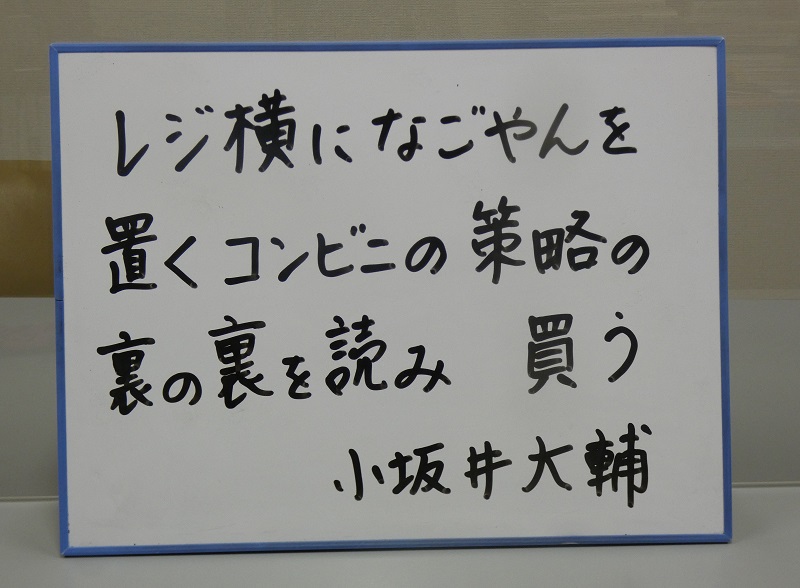 レジ横になごやんを
置くコンビニの策略の
裏の裏を読み　買う
小坂井大輔